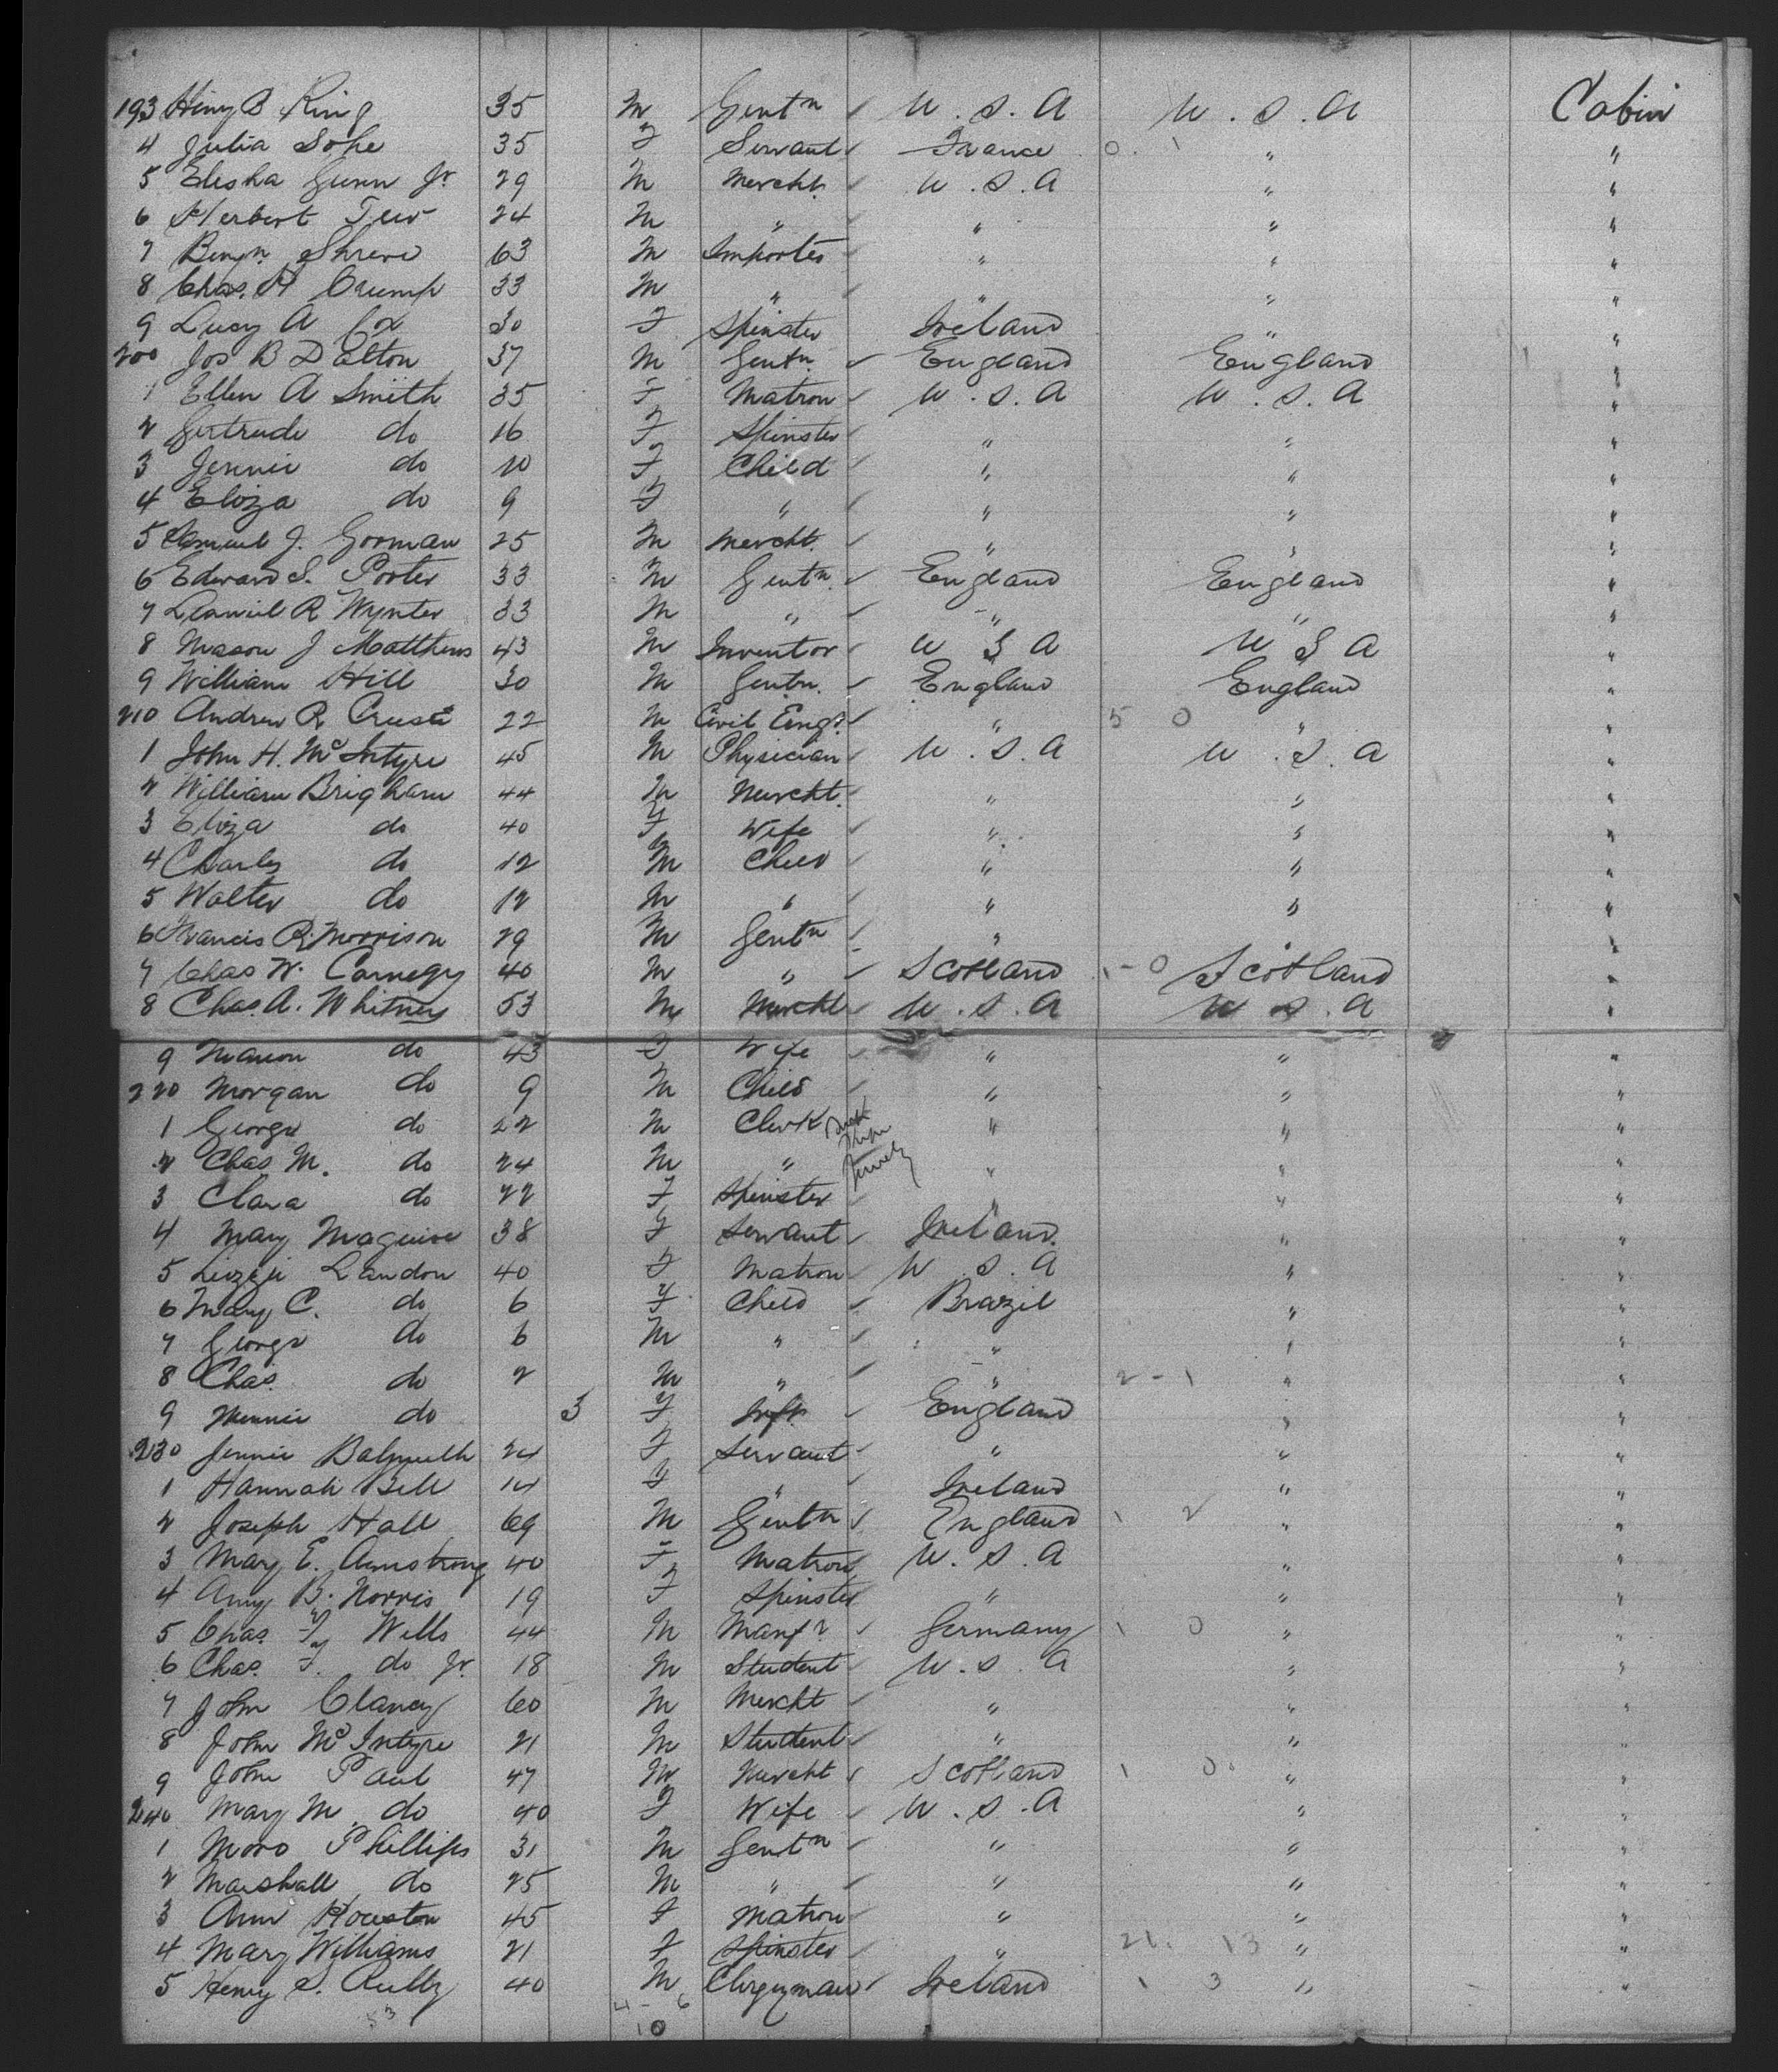 193 Henry B King 35 M Gentn U.S.A U.S.A Cabin
4 Julia Sohe 35 F Servant France 0. 1 " "
5 Elisha Gunn Jr 29 M Mercht U.S.A " "
6 Herbert Tew 24 M " " " "
7 Benjn Shreve 63 M Importer " " "
8 Chas. H Crump 33 M " " " "
9 Lucy A Cox 30 F Spinster Ireland " "
200 Jos B Dalton 37 M Gentn England England "
1 Ellen A Smith 35 F Matron U.S.A U.S.A "
2 Gertrude do 16 F Spinster " " "
3 Jennie do 10 F Child " " "
4 Eliza do 9 F " " " "
5 Samuel J. Gorman 25 M Mercht. " " "
6 Edward S. Porter 33 M Gentn. England England "
7 Daniel R Wynter 33 M " " " "
8 Mason J Matthews 43 M Inventor U S A U S A "
9 William Hill 30 M Gentn. England England "
210 Andrew R 22 M Civil Engr. " 5 0 " "
1 John H. McIntyre 45 M Physician U.S.A U.S.A "
2 William Brigham 44 M Mercht. " " "
3 Eliza do 40 F Wife " " "
4 Charles do 12 M Child " " "
5 Walter do 12 M " " " "
6 Francis R. Morrison 29 M Gentn " " "
7 Chas W. Carnegy 40 M " Scotland 1-0 Scotland "
8 Chas. A. Whitney 53 M Mercht U.S.A U.S.A "
9 Marion do 43 F Wife " " "
220 Morgan do 9 M Child " " "
1 George do 22 M Clerk " " "
2 Chas M. do 24 M " " " "
3 Clara do 22 F Spinster " " "
4 Mary Maguire 38 F Servant Ireland. " "
5 Landon 40 F Matron U.S.A " "
6 Mary C. do 6 F Child Brazil " "
7 George do 6 M " " " "
8 Chas. do 2 M " " 2-1 " "
9 Minnie do 3 F Inft. England " "
230 Jennie 24 F Servant " " "
1 Hannah Bell 14 F " Ireland " "
2 Joseph Hall 69 M Gentn England 1 2 " "
3 Mary E. Armstrong 40 F Matron U.S.A " "
4 Amy B. Norris 19 F Spinster " " "
5 Chas. F Wells 44 M Manfr Germany 1 0 " "
6 Chas. F. do Jr. 18 M Student U.S.A " "
7 John Clancy 60 M Mercht " " "
8 John McIntyre 21 M Student " " "
9 John Paul 47 M Mercht Scotland 1 0. " "
240 Mary M. do 40 F Wife U.S.A " "
1 Moro Phillips 31 M Gentn " " "
2 Marshall do 25 M " " " "
3 Ann Houston 45 F Matron " " "
4 Mary Williams 21 F Spinster " 21. 13 " "
5 Henry S. Reilly 40 M Clergyman Ireland 1 3 " "
53 4-6
10